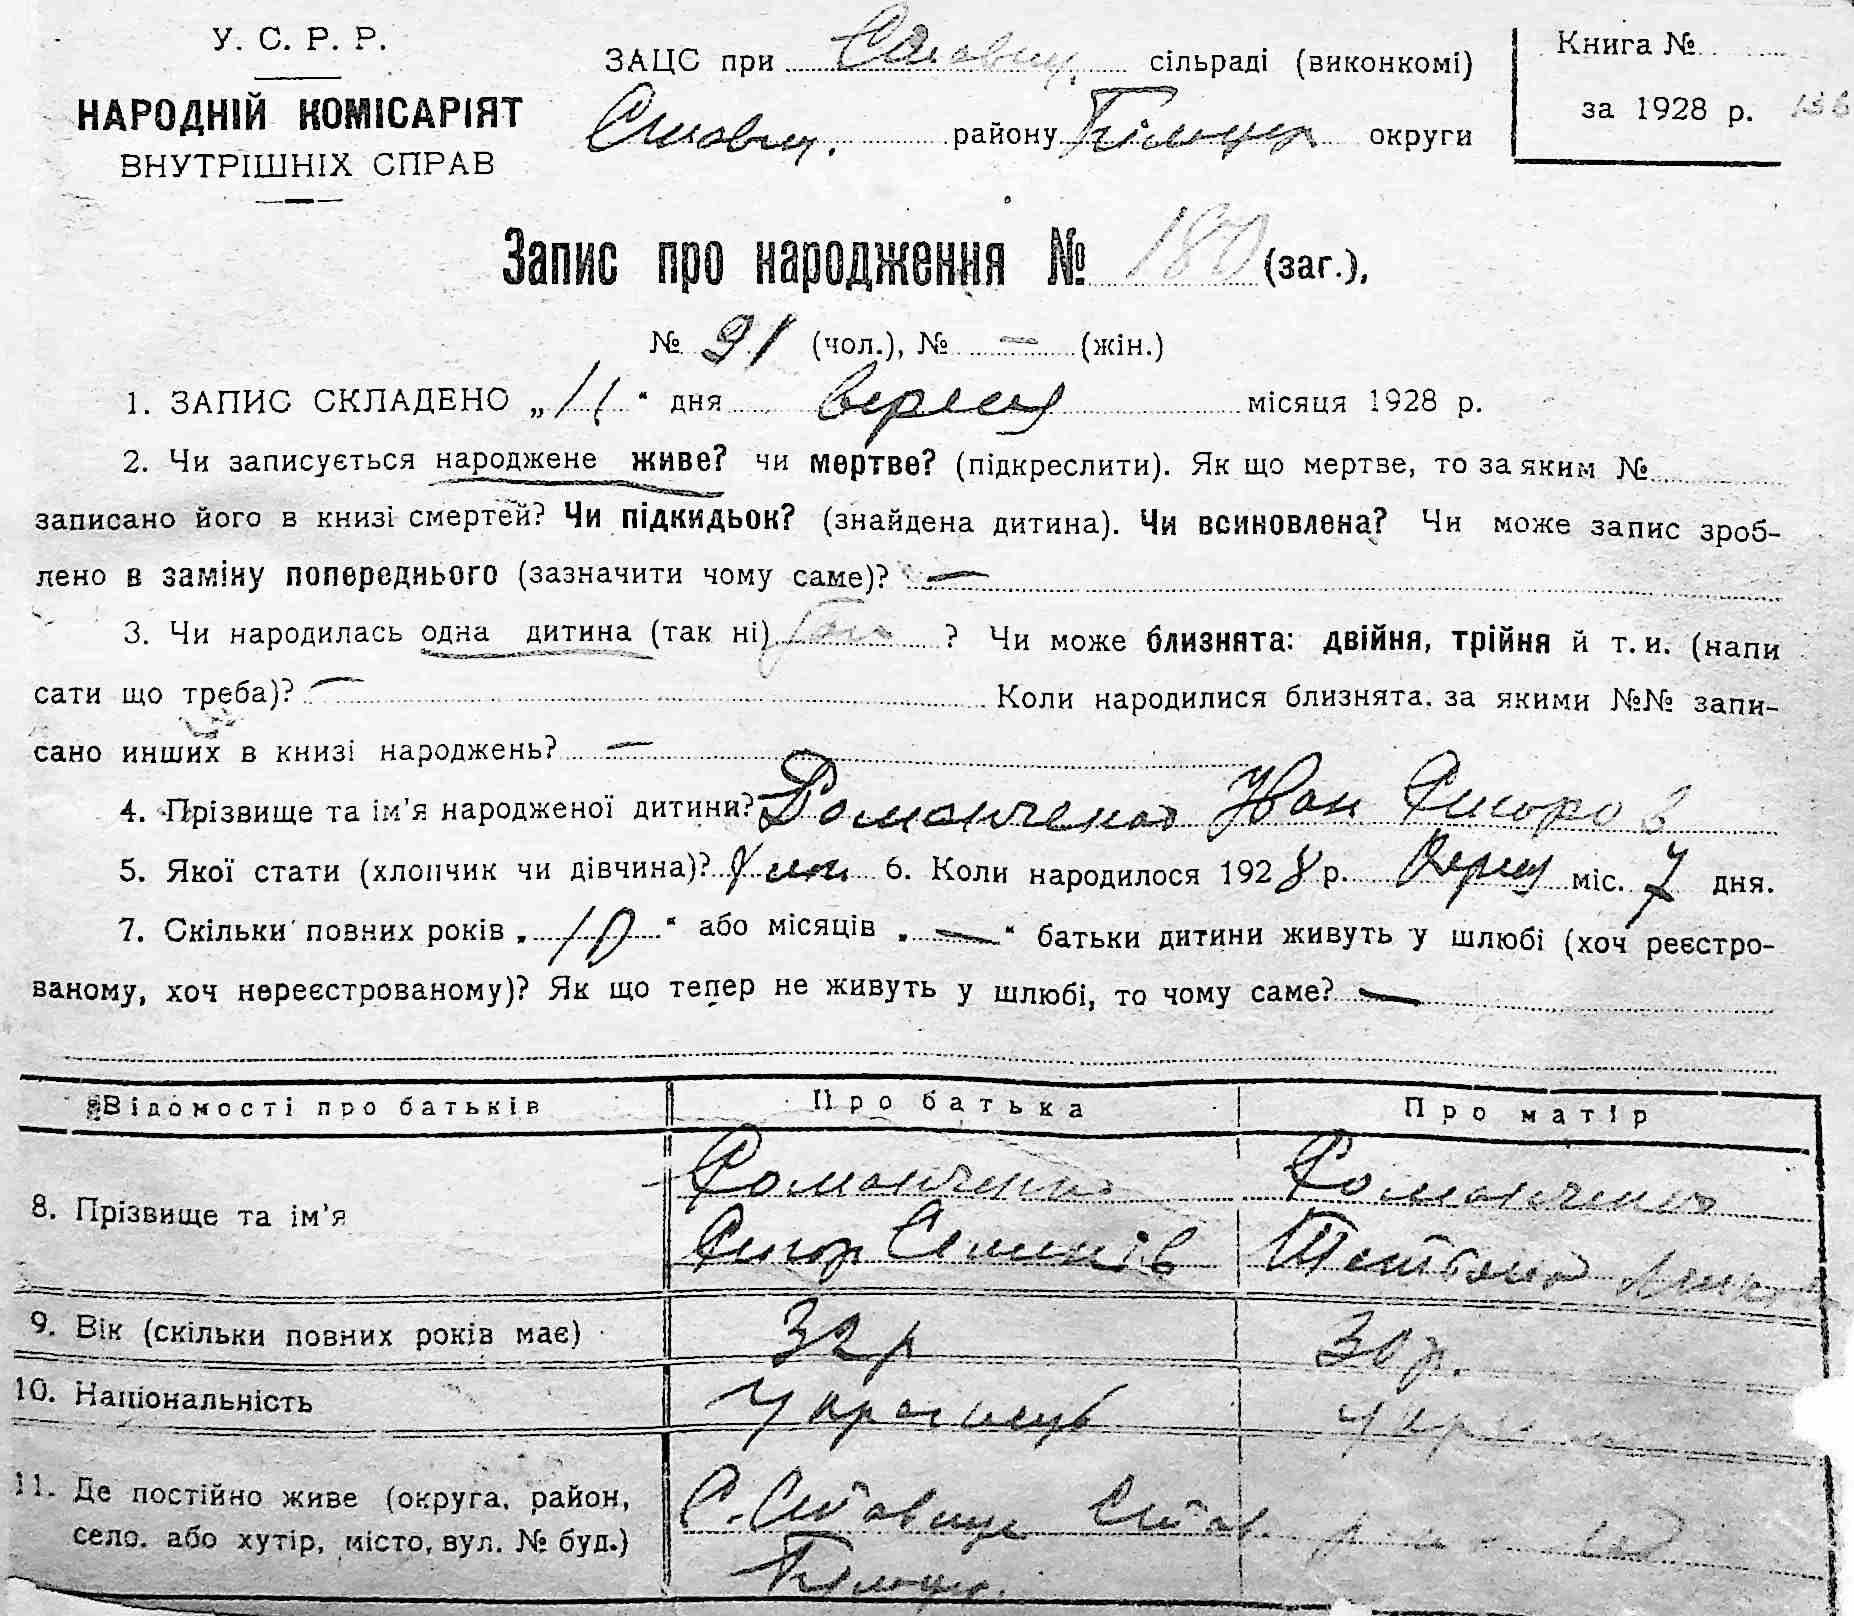 У. С. Р. Р.
НАРОДНІЙ КОМІСАРІЯТ
ВНУТРІШНІХ СПРАВ
ЗАЦС при Ставищ. сільраді (виконкомі)
Ставищ. району Білоцер округи
Книга №
за 1928 р. 136
Запис про народження № 180 (заг.),
№ 91 (чол.), № — (жін.)
1. ЗАПИС СКЛАДЕНО „11“ дня вересня місяця 1928 р.
2. Чи записується народжене живе? чи мертве? (підкреслити). Як що мертве, то за яким №
записано його в книзі смертей? Чи підкидьок? (знайдена дитина). Чи всиновлена? Чи може запис зроб-
лено в заміну попереднього (зазначити чому саме)? —
3. Чи народилась одна дитина (так ні) ? Чи може близнята: двійня, трійня й т. и. (напи
сати що треба)? — Коли народилися близнята. за якими №№ запи-
сано инших в книзі народжень? —
4. Прізвище та ім'я народженої дитини? Романченко Иван Григоров
5. Якої стати (хлопчик чи дівчина)? 6. Коли народилося 1928 р. Верес міс. 7 дня.
7. Скільки повних років „10“ або місяців „—“ батьки дитини живуть у шлюбі (хоч реєстро-
ваному, хоч нереєстрованому)? Як що тепер не живуть у шлюбі, то чому саме? —
Відомості про батьків Про батька Про матір
8. Прізвище та ім'я Романченко Романченко
Григор Тетяна
9. Вік (скільки повних років має) 32 р 30 р.
10. Національність Українець Укра
11. Де постійно живе (округа, район, С. Ставище Став. району
село. або хутір, місто, вул. № буд.) Білоцер.